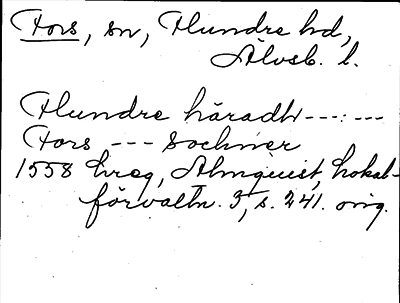 Fors, sn, Flundre hd,
Älvsb. l.
Flundre häradh ---:---
Fors --- Sochner
1558 hreg, Almquist, Lokal-
förvaltn. 3, s. 241. orig.